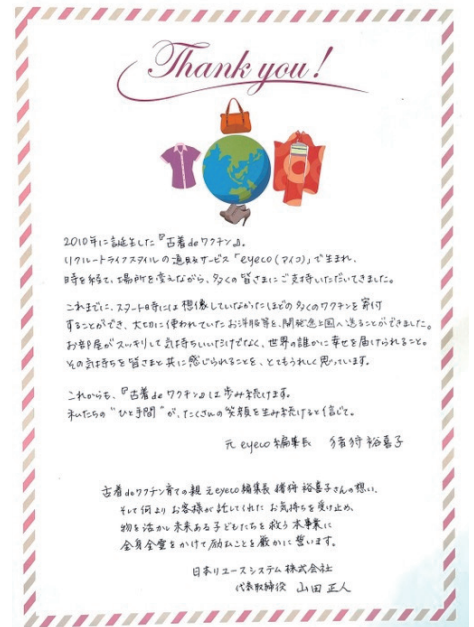 Thank you!
2010年に誕生した『古着deワクチン』。
リクルートライフスタイルの通販サービス「eyeco(アイコ)」で生まれ、
時を経て、場所を変えながら、多くの皆さまにご支持いただいてきました。
これまでに、スタート時には想像していなかったほどの多くのワクチンを寄付
することができ、大切に使われていたお洋服等を、開発途上国へ送ることができました。
お部屋がスッキリして気持ちいいだけでなく、世界の誰かに幸せを届けられること。
その気持ちを皆さまと共に感じられることを、とてもうれしく思っています。
これからも、『古着deワクチン』は歩み続けます。
私たちの“ひと手間”が、たくさんの笑顔を生み続けると信じて。
元 eyeco 編集長 猪狩裕喜子
古着deワクチン育ての親 元eyeco編集長 猪狩裕喜子さんの想い、
そして何より お客様が託してくれた お気持ちを受け止め、
物を活かし未来ある子どもたちを救う本事業に
全身全霊をかけて励むことを厳かに誓います。
日本リユースシステム株式会社
代表取締役 山田正人